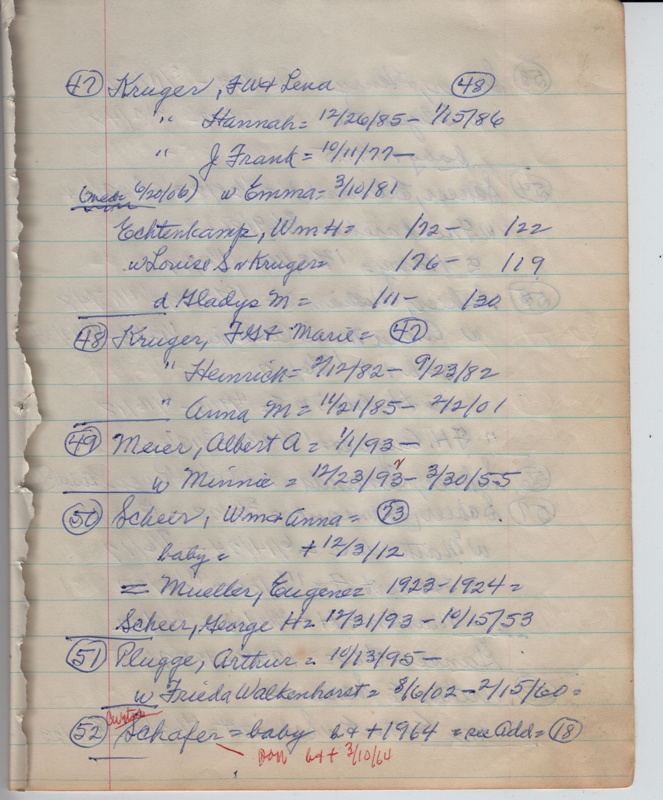 (47) Kruger, FW+ Lena (48)
" Hannah = 12/26/85 - 1/15/86
" J Frank = 10/11/77 -
6/20/06) w Emma = 3/10/81
Echtenkamp, Wm H = /72 - /22
w Louise S v Kruger = /76 - /19
d Gladys M = /11 - /30
(48) Kruger, FG+ Marie = (47)
" Heinrich = 2/12/82 - 9/23/82
" Anna M = 11/21/85 - 2/2/01
(49) Meier, Albert A = 1/1/93 -
w Minnie = 12/23/93 - 3/30/55
(50) Scheir, Wm+Anna = (73)
baby = + 12/3/12
= Mueller, Eugene = 1923-1924 =
Scheer, George H = 12/31/93 - 10/15/53
(51) Plugge, Arthur = 10/13/95 -
w Frieda Walkenhorst = 8/6/02 - 2/15/60 =
(52) Schafer = baby b+ + 1964 = see Add = (18)
son b+ + 3/10/64